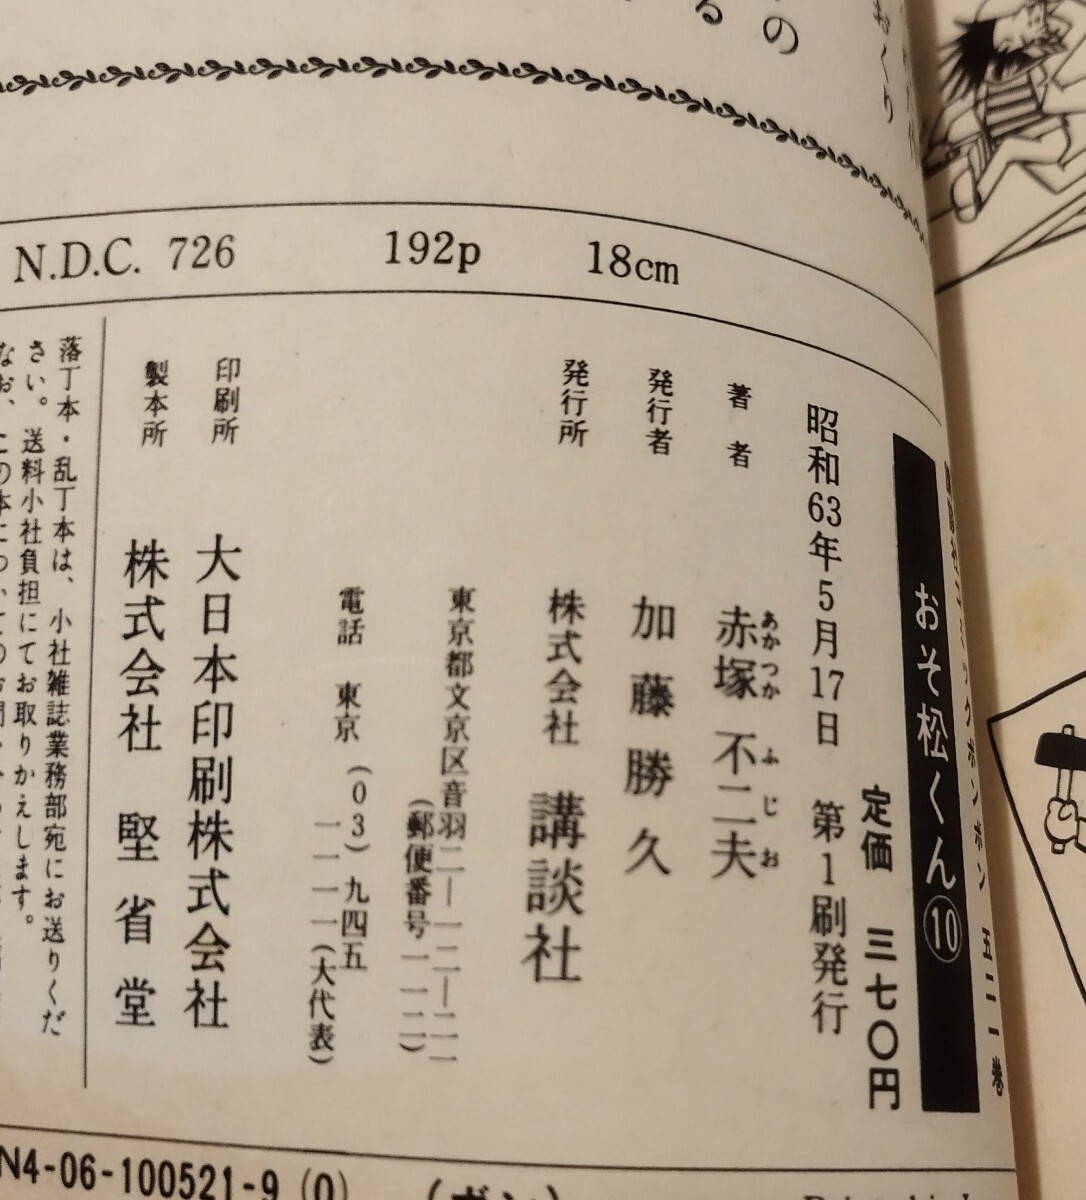 の
る
おくり
N.D.C. 726 192p 18cm
おそ松くん⑩
定価 三七〇円
昭和63年5月17日 第1刷発行
著者 赤塚不二夫
あかつか ふじお
発行者 加藤勝久
発行所 株式会社 講談社
東京都文京区音羽二―一二―二一
(郵便番号一一二)
電話 東京(03)九四五
一一一一(大代表)
印刷所 大日本印刷株式会社
製本所 株式会社 堅省堂
落丁本・乱丁本は、小社雑誌業務部宛にお送りくだ
さい。送料小社負担にてお取りかえします。
なお、この本についてのお問い
N4-06-100521-9 (0) (ボン)